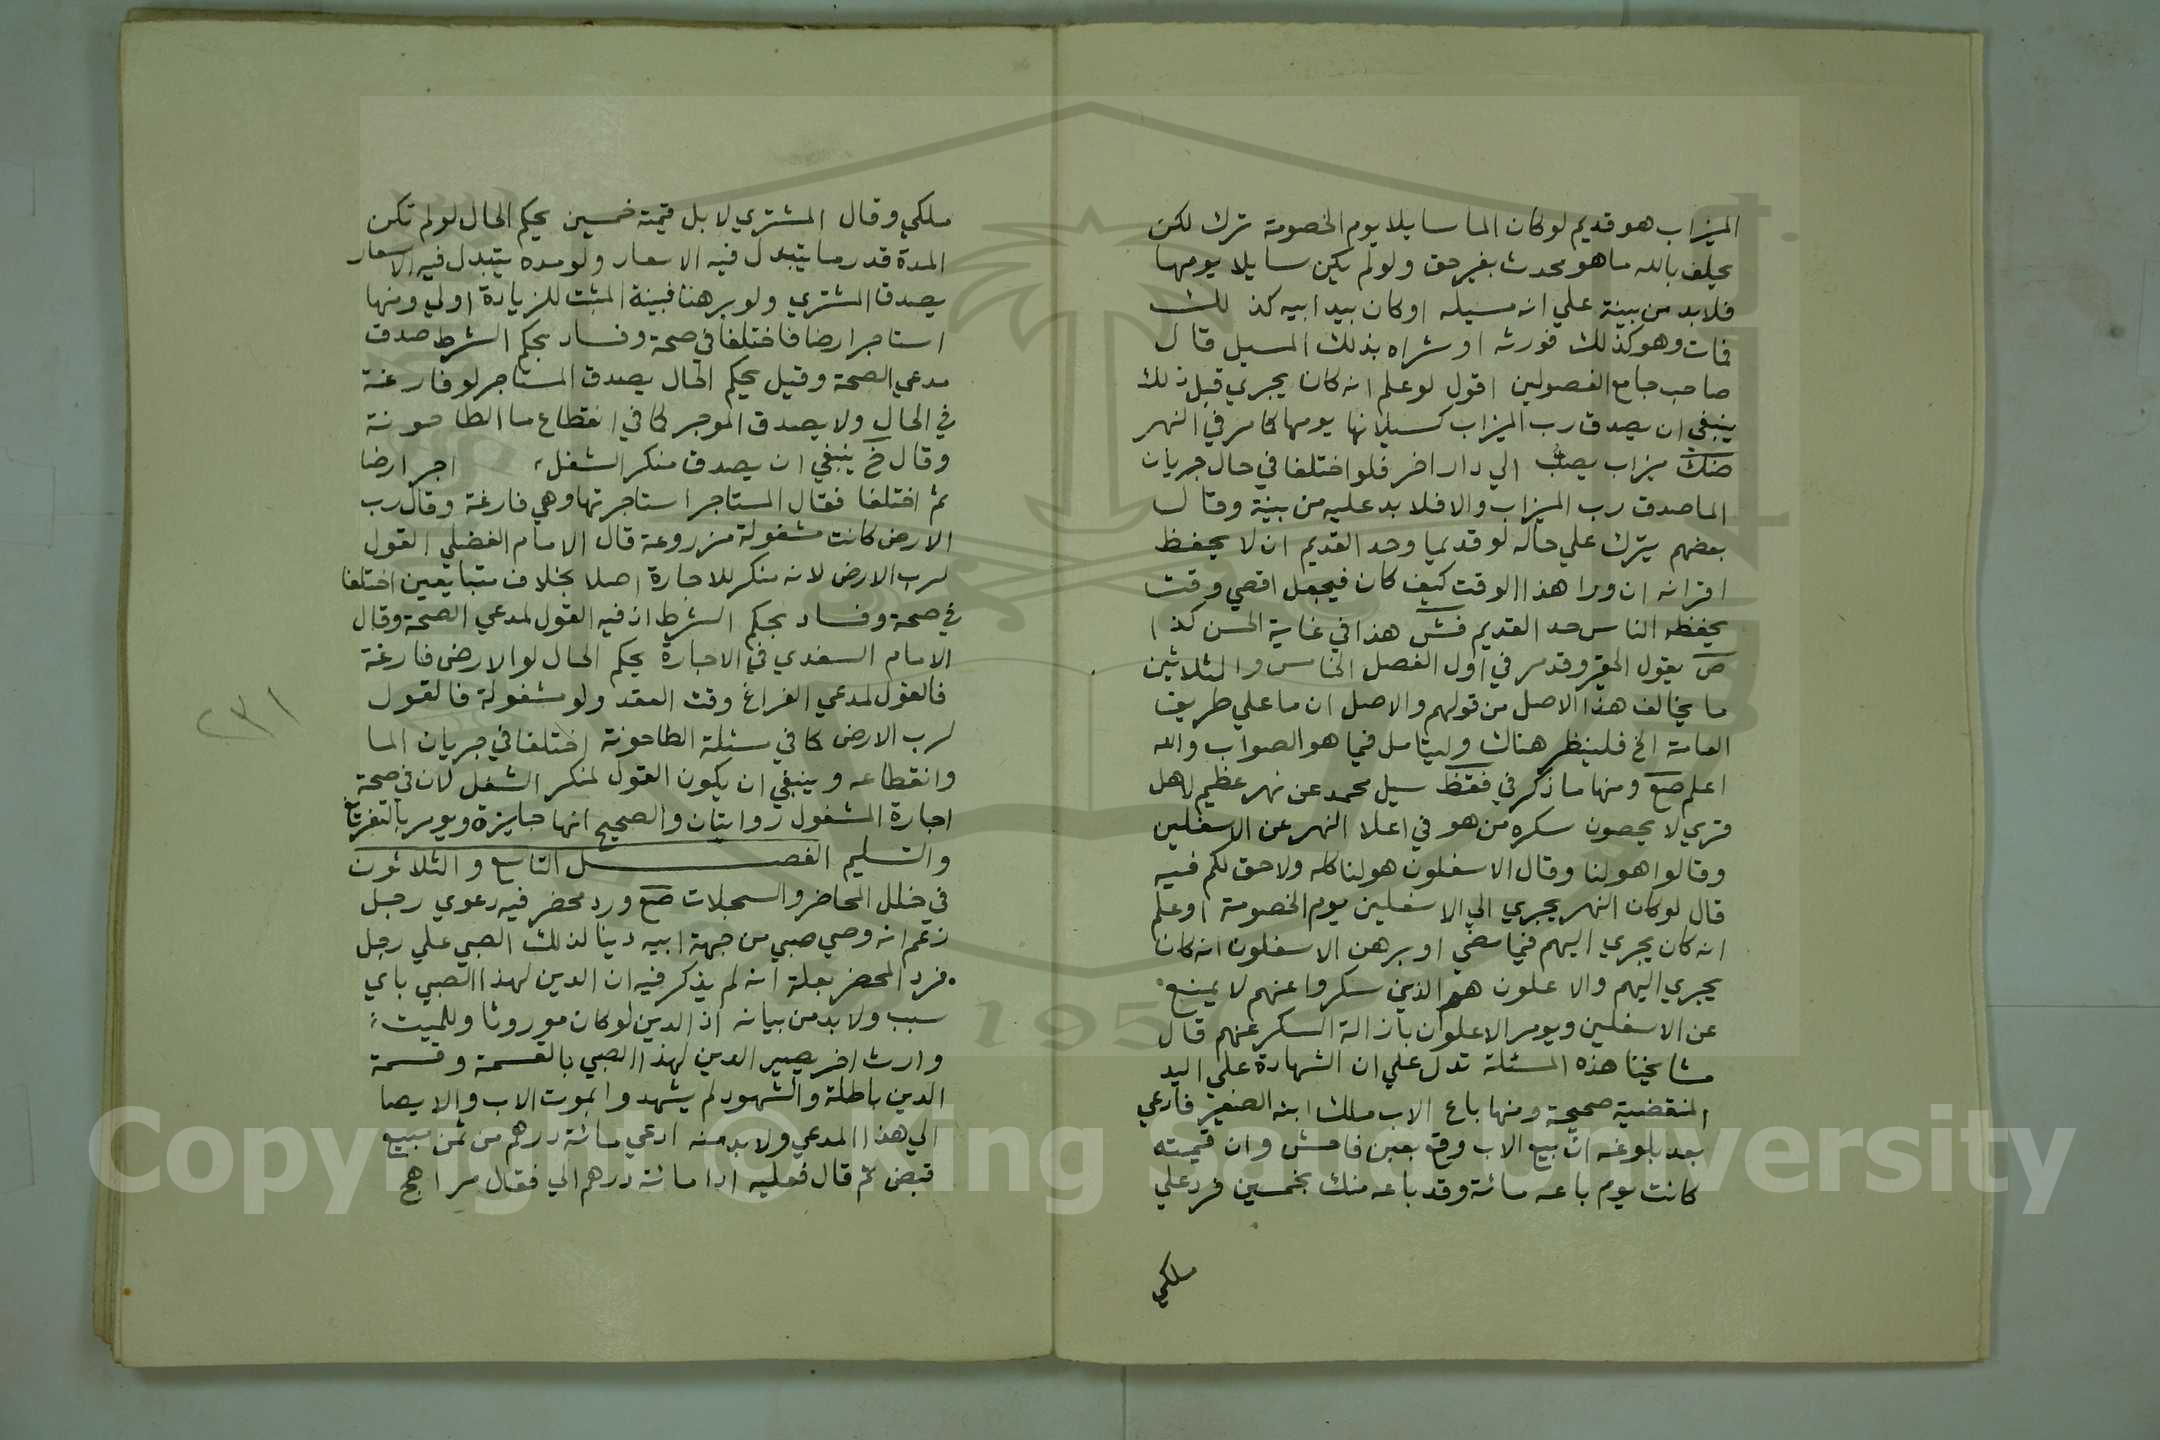 الميزاب هو قديم لو كان الما سايلا يوم الخصومة ترك لكن
يحلف بالله ما هو محدث بغير حق ولو لم يكن سايلا يومها
فلا بد من بينة علي انه مسيله او كان بيد ابيه كذ لك
فمات وهو كذلك فورثه او شراه بذلك المسيل قال
صاحب جامع الفصولين اقول لو علم انه كان يجري قبل ذلك
ينبغي ان يصدق رب الميزاب كسيلانها يومها كما مر في النهر
ضنك ميزاب يصب الي دار اخر فلو اختلفا في حال جريان
الما صدق رب الميزاب والا فلا بد عليه من بينة وقال
بعضهم يترك علي حاله لو قديما وحد القديم ان لا يحفظ
اقرانه ان ورا هذا الوقت كيف كان فيجعل اقصي وقت
يحفظه الناس حد القديم فش هذا في غاية الحسن كذا
ص يقول الحقير وقد مر في اول الفصل الخامس والثلاثين
ما يخالف هذا الاصل من قولهم والاصل ان ما علي طريق
العامة الخ فلينظر هناك وليتامل فيما هو الصواب والله
اعلم صع ومنها ما ذكر في فقظ سيل محمد عن نهر عظيم لاهل
قري لا يحصون سكره من هو في اعلا النهر عن الاسفلين
وقالوا هو لنا وقال الاسفلون هو لنا كله ولا حق لكم فيه
قال لو كان النهر يجري الي الاسفلين يوم الخصومة او علم
انه كان يجري اليهم فيما مضي او برهن الاسفلون انه كان
يجري اليهم والاعلون هم الذين سكروا عنهم لا يمنع
عن الاسفلين ويومر الاعلون بازالة السكر عنهم قال
مشايخنا هذه المسئلة تدل علي ان الشهادة علي اليد
المنقضية صحيحة ومنها باع الاب ملك ابنه الصغير فادعي
بعد بلوغه ان بيع الاب وقع بغبن فاحش وان قيمته
كانت يوم باعه مائة وقد باعه منك بخمسين فرد علي
ملكي
ملكي وقال المشتري لا بل قيمة خمسين يحكم الحال لو لم تكن
المدة قدر ما يتبدل فيه الاسعار ولو مده يتبدل فيه الاسعار
يصدق المشتري ولو برهنا فبينة المثبت للزيادة اولي ومنها
استاجر ارضا فاختلفا في صحة وفساد بحكم الشرط صدق
مدعي الصحة وقيل يحكم الحال يصدق المستاجر لو فارغة
في الحال ولا يصدق الموجر كما في انقطاع ما الطاحونة
وقال خ ينبغي ان يصدق منكر الشغل اجر ارضا
ثم اختلفا فقال المستاجر استاجرتها وهي فارغة وقال رب
الارض كانت مشغولة مزروعة قال الامام الفضلي القول
لرب الارض لانه منكر للاجارة اصلا بخلاف متبايعين اختلفا
في صحة وفساد بحكم الشرط اذ فيه القول لمدعي الصحة وقال
الامام السغدي في الاجارة يحكم الحال لو الارض فارغة
فالقول لمدعي الفراغ وقت العقد ولو مشغولة فالقول
لرب الارض كما في مسئلة الطاحونة اختلفا في جريان الما
وانقطاعه وينبغي ان يكون القول لمنكر الشغل لان في صحة
اجارة المشغول روايتان والصحيح انها جايزة ويومر بالتفريغ
والتسليم الفصل التاسع والثلاثون
في خلل المحاضر والسجلات صع ورد محضر فيه دعوي رجل
زعم انه وصي صبي من جهة ابيه دينا لذلك الصبي علي رجل
فرد المحضر بعلة انه لم يذكر فيه ان الدين لهذا الصبي باي
سبب ولا بد من بيانه اذ الدين لو كان موروثا وللميت
وارث اخر يصير الدين لهذا الصبي بالقسمة وقسمة
الدين باطلة والشهود لم يشهدوا بموت الاب والايصا
الي هذا المدعي ولا بد منه ادعي مائة درهم من ثمن مبيع
قبض ثم قال فعليه ادا مائة درهم الي فقال
٢٣١
Copyright © King Saud University
1957